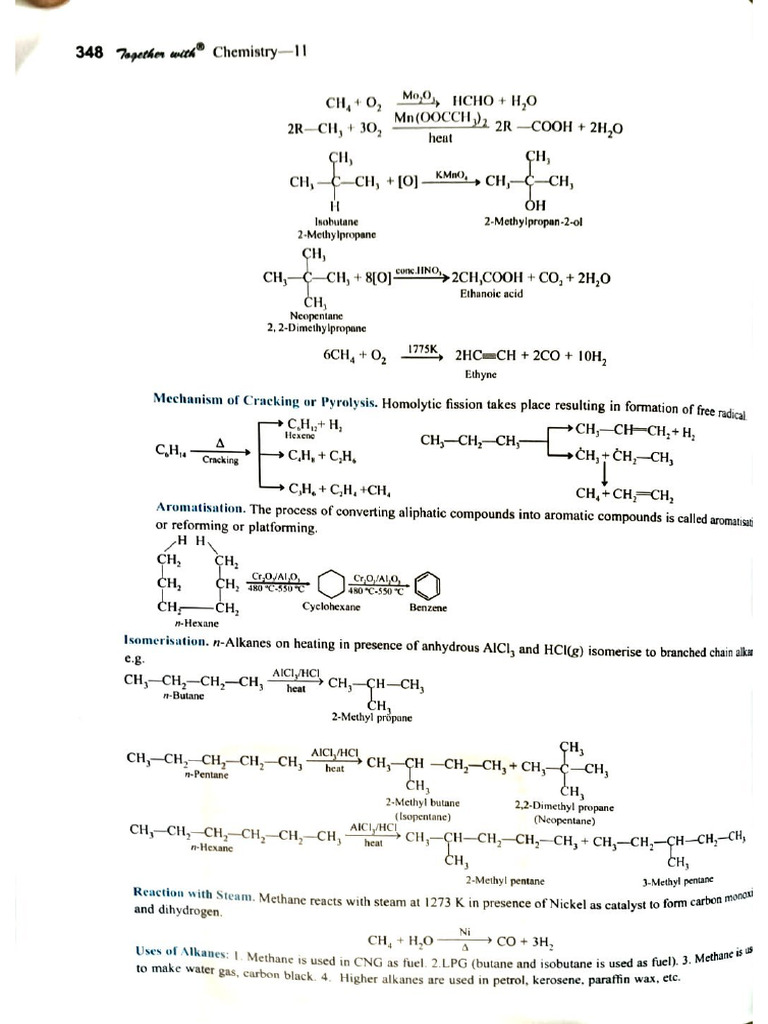 348 Together with® Chemistry—11
CH₄ + O₂ —Mo₂O₃→ HCHO + H₂O
2R—CH₃ + 3O₂ —Mn(OOCCH₃)₂ / heat→ 2R —COOH + 2H₂O
CH₃ CH₃
CH₃—C—CH₃ + [O] —KMnO₄→ CH₃—C—CH₃
H OH
Isobutane 2-Methylpropan-2-ol
2-Methylpropane
CH₃
CH₃—C—CH₃ + 8[O] —conc.HNO₃→ 2CH₃COOH + CO₂ + 2H₂O
CH₃ Ethanoic acid
Neopentane
2, 2-Dimethylpropane
6CH₄ + O₂ —1775K→ 2HC≡CH + 2CO + 10H₂
Ethyne
Mechanism of Cracking or Pyrolysis. Homolytic fission takes place resulting in formation of free radical
C₆H₁₄ —Δ / Cracking→
C₆H₁₂ + H₂
Hexene
C₄H₈ + C₂H₆
C₃H₆ + C₂H₄ +CH₄
CH₃—CH₂—CH₃
CH₃—CH=CH₂ + H₂
ĊH₃ + ĊH₂—CH₃
CH₄ + CH₂=CH₂
Aromatisation. The process of converting aliphatic compounds into aromatic compounds is called aromatisati
or reforming or platforming.
H H
CH₂ CH₂
CH₂ CH₂ —Cr₂O₃/Al₂O₃ / 480 °C-550 °C→ —Cr₂O₃/Al₂O₃ / 480 °C-550 °C→
CH₂—CH₂ Cyclohexane Benzene
n-Hexane
Isomerisation. n-Alkanes on heating in presence of anhydrous AlCl₃ and HCl(g) isomerise to branched chain alka
e.g.
CH₃—CH₂—CH₂—CH₃ —AlCl₃/HCl / heat→ CH₃—CH—CH₃
n-Butane CH₃
2-Methyl propane
CH₃
CH₃—CH₂—CH₂—CH₂—CH₃ —AlCl₃/HCl / heat→ CH₃—CH —CH₂—CH₃ + CH₃—C—CH₃
n-Pentane CH₃ CH₃
2-Methyl butane 2,2-Dimethyl propane
(Isopentane) (Neopentane)
CH₃—CH₂—CH₂—CH₂—CH₂—CH₃ —AlCl₃/HCl / heat→ CH₃—CH—CH₂—CH₂—CH₃ + CH₃—CH₂—CH—CH₂—CH₃
n-Hexane CH₃ CH₃
2-Methyl pentane 3-Methyl pentane
Reaction with Steam. Methane reacts with steam at 1273 K in presence of Nickel as catalyst to form carbon monoxi
and dihydrogen.
CH₄ + H₂O —Ni / Δ→ CO + 3H₂
Uses of Alkanes: 1. Methane is used in CNG as fuel. 2.LPG (butane and isobutane is used as fuel). 3. Methane is us
to make water gas, carbon black. 4. Higher alkanes are used in petrol, kerosene, paraffin wax, etc.